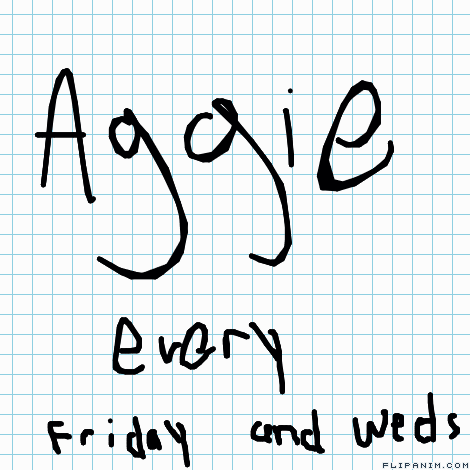 Aggie
every
Friday and weds
FLIPANIM.COM